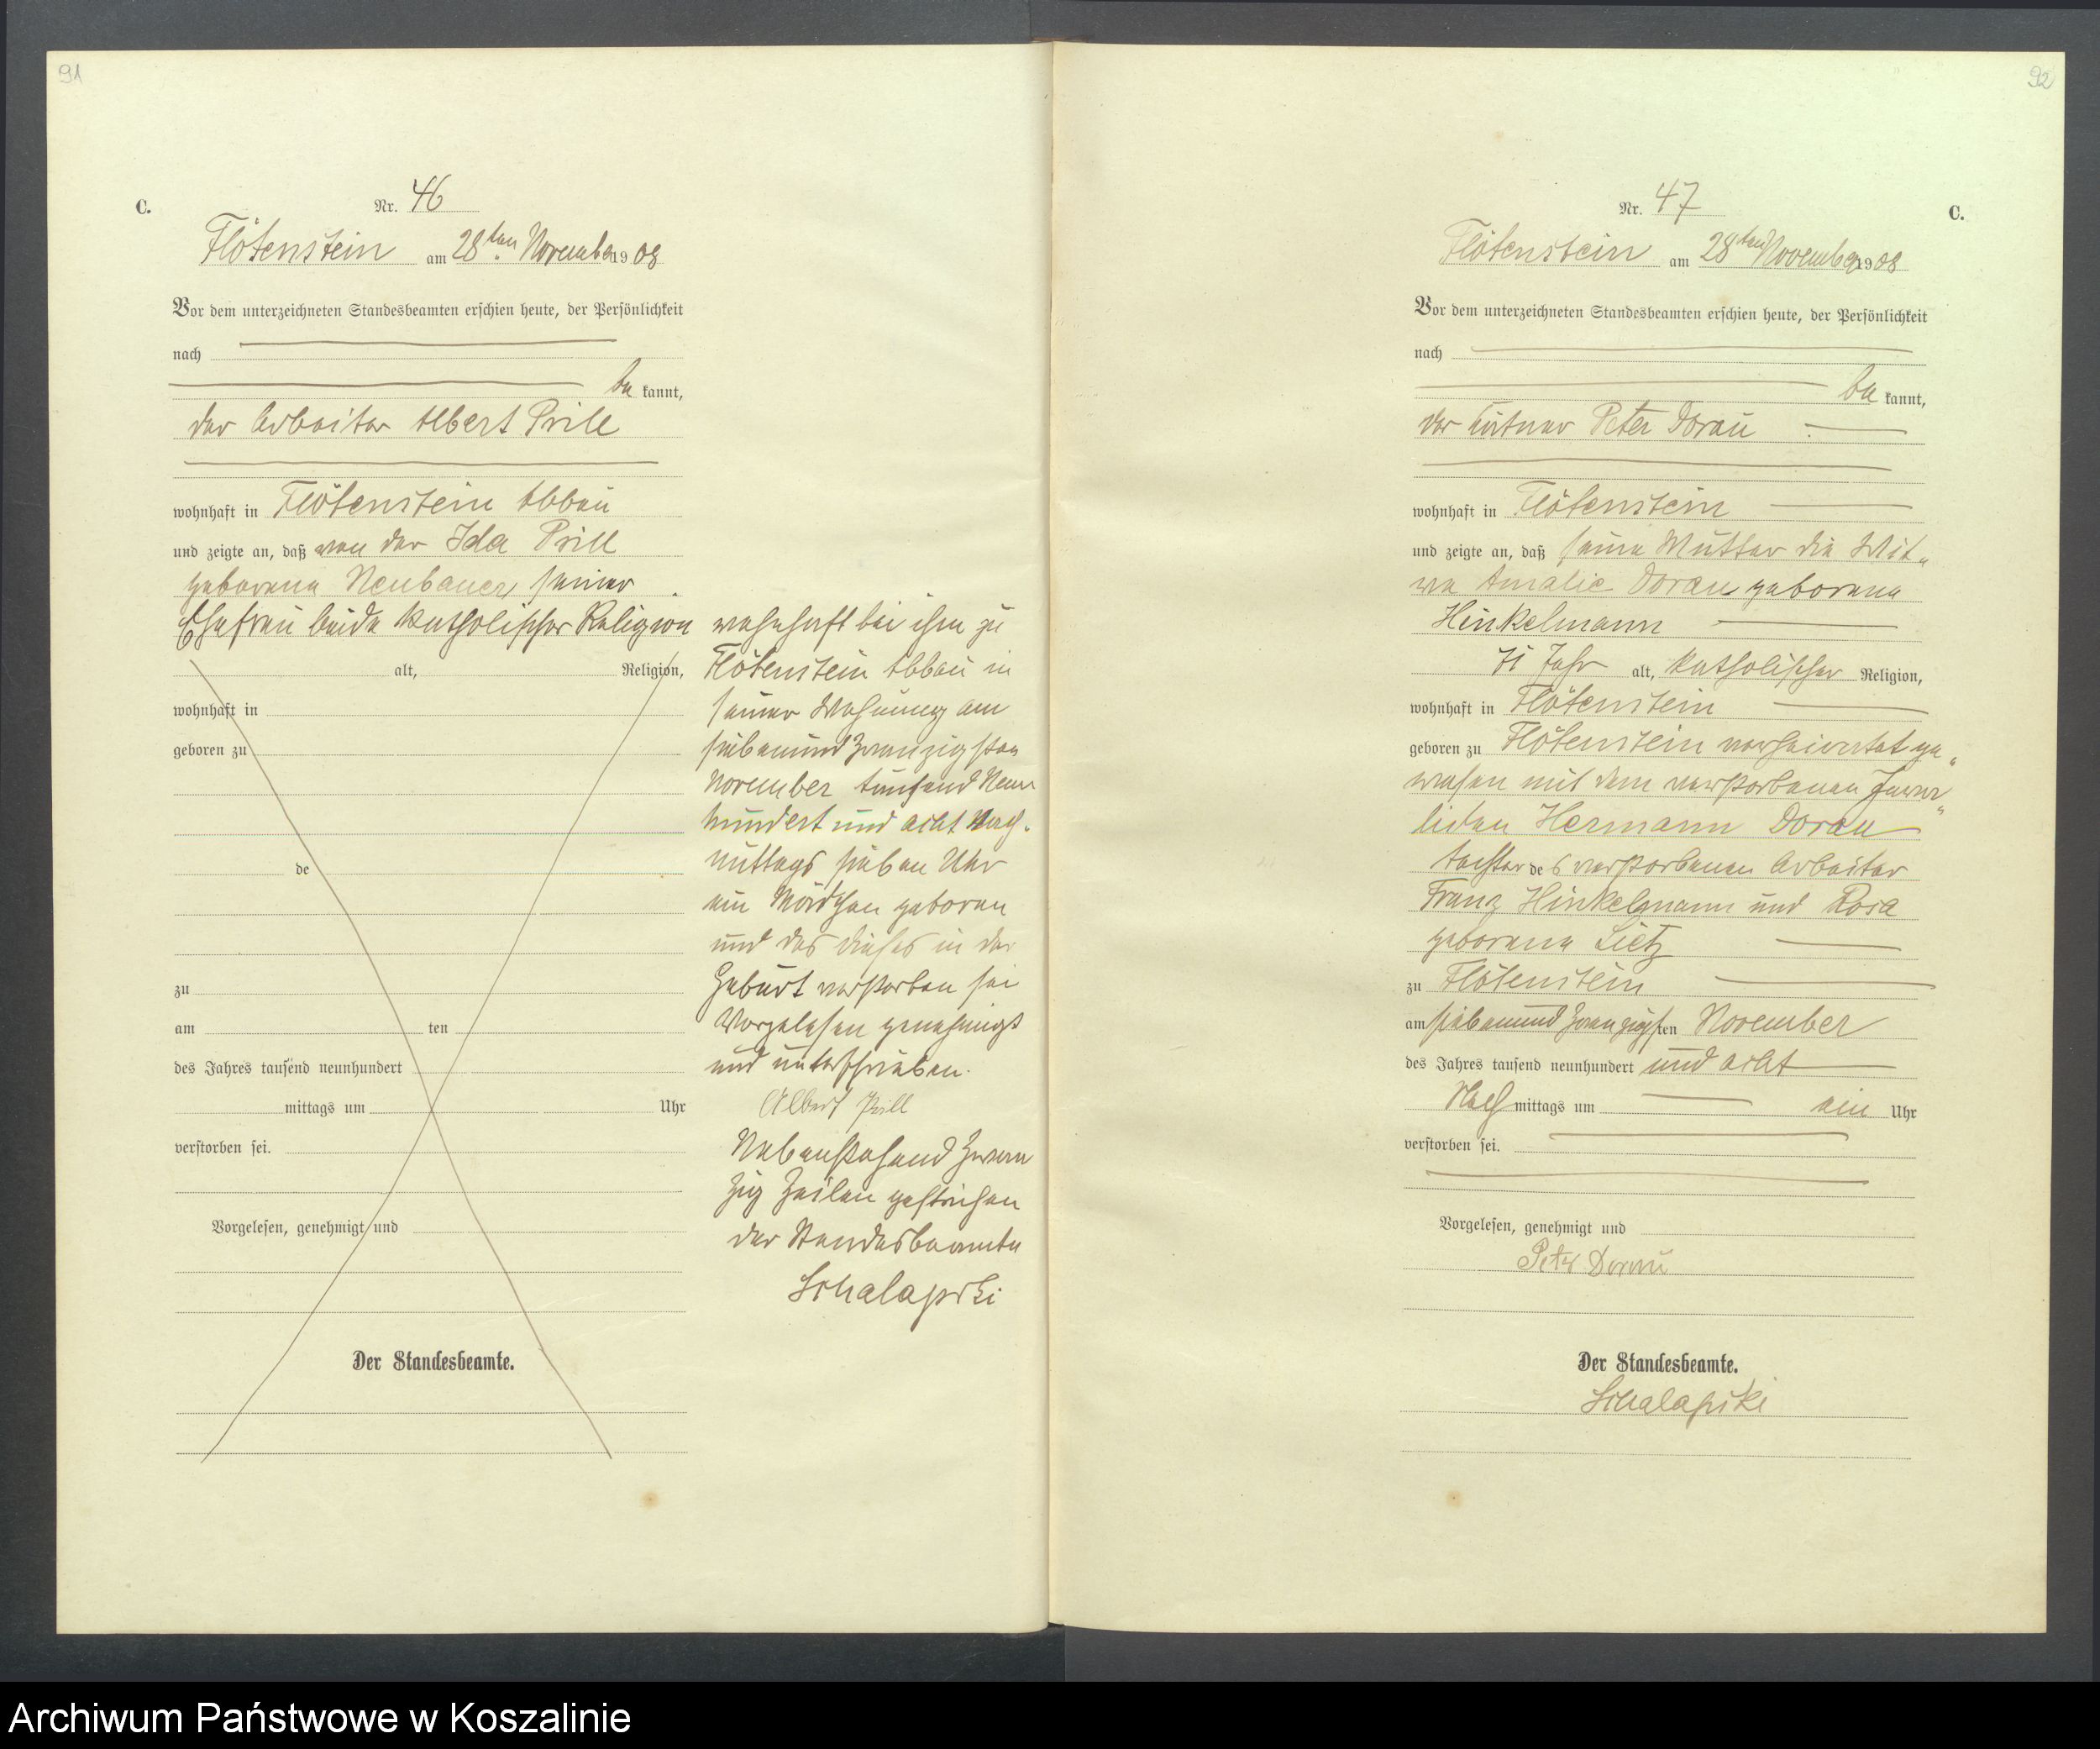 91
C.
Nr. 46
Flötenstein am 28ten November 1908
Vor dem unterzeichneten Standesbeamten erschien heute, der Persönlichkeit
nach
be kannt,
der Arbeiter Albert Prill
wohnhaft in Flötenstein Abbau
und zeigte an, daß von der Ida Prill
geborene Neubauer seiner
Ehefrau beide katholischer Religion
alt, Religion,
wohnhaft in
geboren zu
de
zu
am ten
des Jahres tausend neunhundert
mittags um Uhr
verstorben sei.
Vorgelesen, genehmigt und
Der Standesbeamte.
wohnhaft bei ihm zu
Flötenstein Abbau in
seiner Wohnung am
siebenundzwanzigsten
November tausend Neun
hundert und acht Nach-
mittags sieben Uhr
ein Mädchen geboren
und das dieses in der
Geburt verstorben sei
Vorgelesen genehmigt
und unterschrieben.
Albert Prill
Nebenstehend zwan
zig Zeilen gestrichen
der Standesbeamte
Schalapski
92
C.
Nr. 47
Flötenstein am 28ten November 1908
Vor dem unterzeichneten Standesbeamten erschien heute, der Persönlichkeit
nach
be kannt,
der Peter Dorau
wohnhaft in Flötenstein
und zeigte an, daß seine Mutter die Wit„
we Amalie Dorau geborene
Hinkelmann
71 Jahr alt, katholischer Religion,
wohnhaft in Flötenstein
geboren zu Flötenstein verheiratet ge„
wesen mit dem verstorbenen Inva„
liden Hermann Dorau
Tochter des verstorbenen Arbeiter
Franz Hinkelmann und Rosa
geborene Lietz
zu Flötenstein
am siebenundzwanzigsten November
des Jahres tausend neunhundert und acht
Nach mittags um ein Uhr
verstorben sei.
Vorgelesen, genehmigt und
Peter Dorau
Der Standesbeamte.
Schalapski
Archiwum Państwowe w Koszalinie